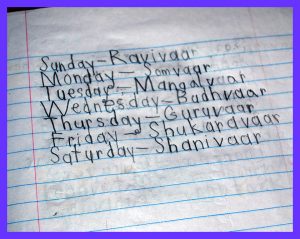 Sunday-Ravivaar
Monday-Somvaar
Tuesday-Mangalvaar
Wednesday-Budhvaar
Thursday-Guruvaar
Friday-Shukardvaar
Saturday-Shanivaar